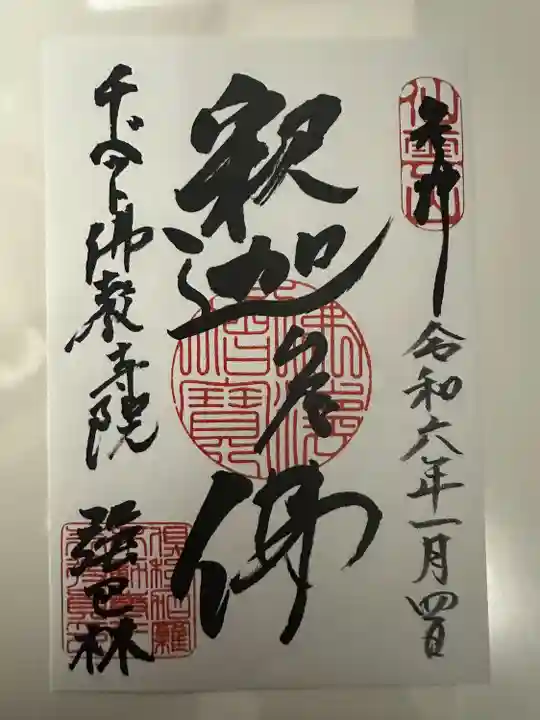 奉拝
令和六年一月四日
釈迦牟尼佛
チベット佛教寺院
強巴林